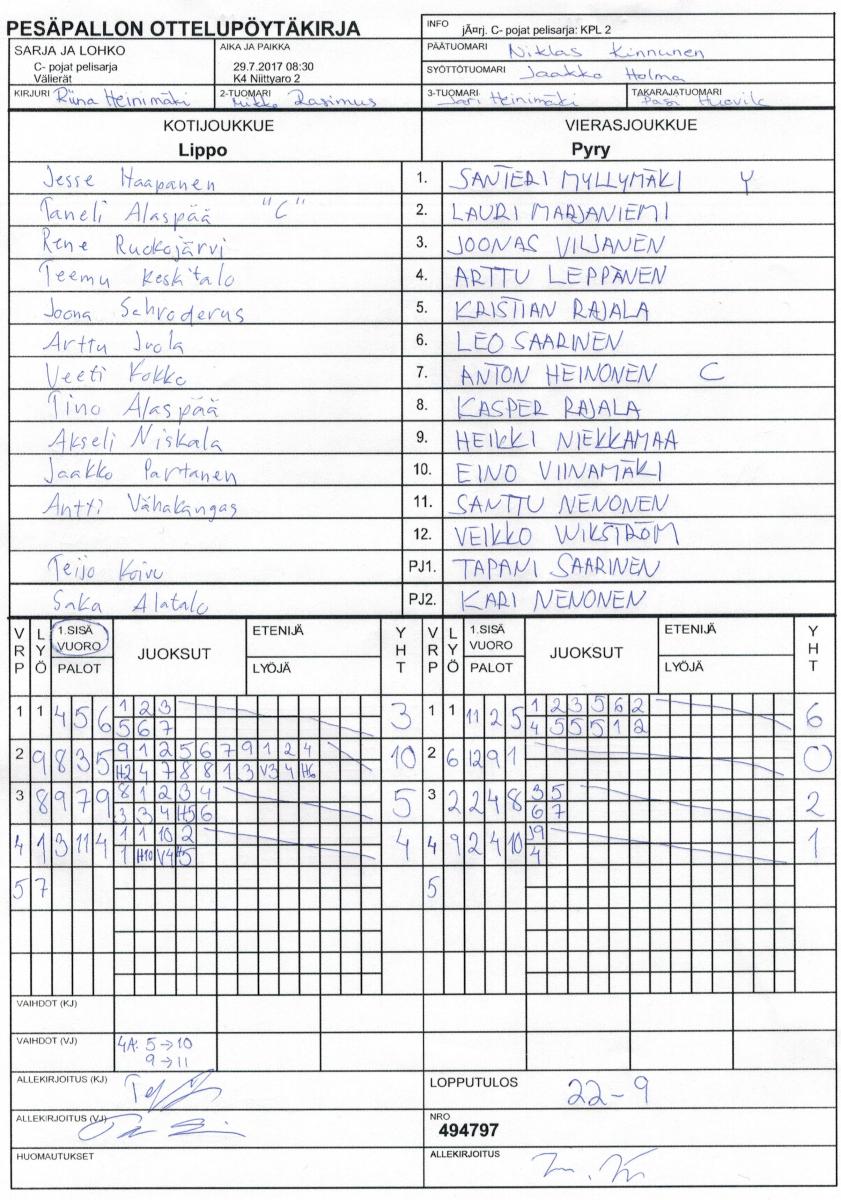 PESÄPALLON OTTELUPÖYTÄKIRJA
INFO jÃ¤rj. C- pojat pelisarja: KPL 2
SARJA JA LOHKO
C- pojat pelisarja
Välierät
AIKA JA PAIKKA
29.7.2017 08:30
K4 Niittyaro 2
PÄÄTUOMARI Niklas Kinnunen
SYÖTTÖTUOMARI Jaakko Holma
KIRJURI Riina Heinimäki
2-TUOMARI Mikko Rasimus
3-TUOMARI Jari Heinimäki
TAKARAJATUOMARI Pasi
KOTIJOUKKUE
Lippo
VIERASJOUKKUE
Pyry
Jesse Haapanen 1. SANTERI MYLLYMÄKI Y
Taneli Alaspää "C" 2. LAURI MARJANIEMI
Rene Ruokojärvi 3. JOONAS VILJANEN
Teemu Keskitalo 4. ARTTU LEPPÄNEN
Joona Schroderus 5. KRISTIAN RAJALA
Arttu Juola 6. LEO SAARINEN
Veeti Kokko 7. ANTON HEINONEN C
Tino Alaspää 8. KASPER RAJALA
Akseli Niskala 9. HEIKKI NIEKKAMAA
Jaakko Partanen 10. EINO VIINAMÄKI
Antti Vähäkangas 11. SANTTU NENONEN
12. VEIKKO WIKSTRÖM
Teijo Koivu PJ1. TAPANI SAARINEN
Saka Alatalo PJ2. KARI NENONEN
VRP LYÖ 1.SISÄ VUORO PALOT JUOKSUT ETENIJÄ LYÖJÄ YHT VRP LYÖ 1.SISÄ VUORO PALOT JUOKSUT ETENIJÄ LYÖJÄ YHT
1 1 4 5 6 1 2 3 3 1 1 11 2 5 1 2 3 5 6 2 6
5 6 7 4 5 5 5 1 2
2 9 8 3 5 9 1 2 5 6 7 9 1 2 4 10 2 6 12 9 1 0
H2 4 7 8 8 1 3 V3 4 H6
3 8 9 7 9 8 1 2 3 4 5 3 2 2 4 8 3 5 2
3 3 4 H5 6 6 7
4 1 3 11 4 1 1 10 2 4 4 9 2 4 10 J9 1
1 H10 V4 H5 4
5 7 5
VAIHDOT (KJ)
VAIHDOT (VJ) 4A: 5→10
9→11
ALLEKIRJOITUS (KJ)
LOPPUTULOS 22-9
ALLEKIRJOITUS (VJ)
NRO
494797
HUOMAUTUKSET
ALLEKIRJOITUS